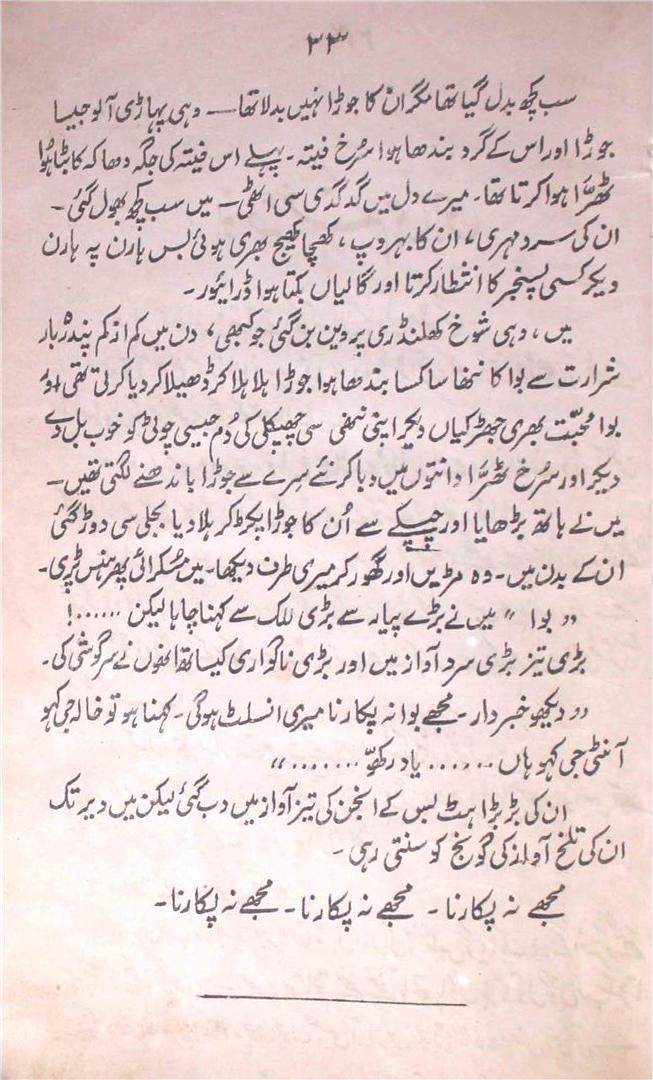 ۳۳
سب کچھ بدل گیا تھا مگر ان کا جوڑا نہیں بدلا تھا — وہی پہاڑی آلو جیسا
جوڑا اور اس کے گرد بندھا ہوا سُرخ فیتہ۔ پہلے اس فیتہ کی جگہ دھاکہ کا بٹا ہُوا
ٹھرّا ہوا کرتا تھا۔ میرے دل میں گدگدی سی اٹھی — میں سب کچھ بھول گئی۔
ان کی سرد مہری، ان کا بہروپ، کھچا کھچ بھری ہوئی بس ہارن پہ ہارن
دیکر کسی پسنجر کا انتظار کرتا اور گالیاں بکتا ہوا ڈرائیور۔
میں، وہی شوخ کھلنڈری پروین بن گئی جو کبھی، دن میں کم از کم پندرہ بار
شرارت سے بوا کا ننھا سا کسا بندھا ہوا جوڑا ہلا ہلا کر ڈھیلا کر دیا کرتی تھی اور
بوا محبّت بھری جھڑکیاں دیکر اپنی ننھی سی چھپکلی کی دُم جیسی چوٹی کو خوب بل دے
دیکر اور سُرخ ٹھرّا دانتوں میں دبا کر نئے سرے سے جوڑا باندھنے لگتی تھیں۔
میں نے ہاتھ بڑھایا اور چپکے سے اُن کا جوڑا پکڑ کر ہلا دیا بجلی سی دوڑ گئی
ان کے بدن میں۔ وہ مڑیں اور گھور کر میری طرف دیکھا۔ میں مسکرائی پھر ہنس پڑی۔
"بوا" میں نے بڑے پیار سے بڑی للک سے کہنا چاہا لیکن ......!
بڑی تیز بڑی سرد آواز میں اور بڑی ناگواری کیساتھ انھوں نے سرگوشی کی۔
"دیکھو خبردار۔ مجھے بوا نہ پکارنا میری انسلٹ ہوگی۔ کہنا ہو تو خالہ جی کہو
آنٹی جی کہو ہاں ...... یاد رکھّو ......."
ان کی بڑبڑاہٹ بس کے انجن کی تیز آواز میں دب گئی لیکن میں دیر تک
ان کی تلخ آواز کی گونج کو سنتی رہی۔
مجھے نہ پکارنا۔ مجھے نہ پکارنا۔ مجھے نہ پکارنا۔